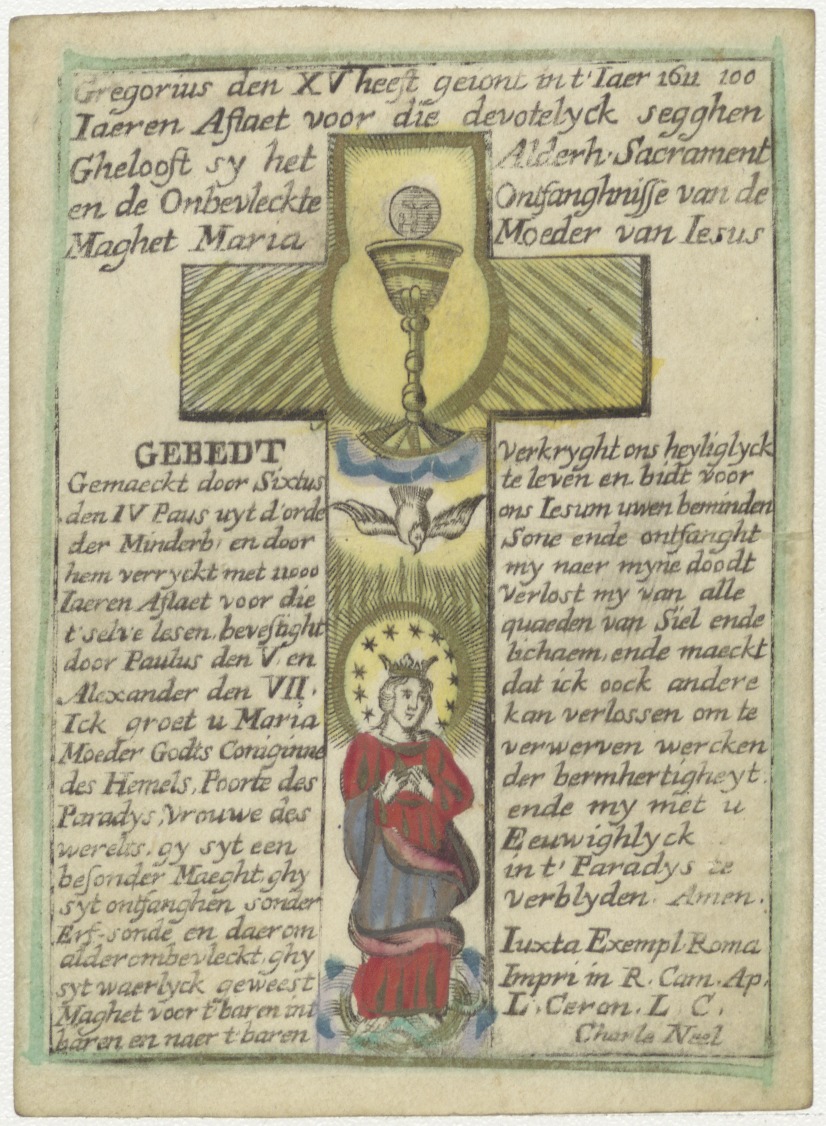 Gregorius den XV heeft geiont in t' Iaer 1611 100
Iaeren Aflaet voor die devotelyck segghen
Ghelooft sy het Alderh. Sacrament
en de Onbevleckte Ontfanghnisse van de
Maghet Maria Moeder van Iesus
GEBEDT
Gemaeckt door Sixtus
den IV Paus uyt d'orde
der Minderb. en door
hem verryckt met 11000
Iaeren Aflaet voor die
t'selve lesen, bevestight
door Paulus den V. en
Alexander den VII.
Ick groet u Maria
Moeder Godts Coniginne
des Hemels, Poorte des
Paradys, Vrouwe des
werelts, gy syt een
besonder Maeght, ghy
syt ontfanghen sonder
Erf-sonde en daerom
alderombevleckt, ghy
syt waerlyck geweest
Maghet voor t'baren int
baren en naer t'baren
verkryght ons heyliglyck
te leven en bidt voor
ons Iesum uwen beminden
Sone ende ontfanght
my naer myne doodt
Verlost my van alle
quaeden van Siel ende
lichaem, ende maeckt
dat ick oock andere
kan verlossen om te
verwerven wercken
der bermhertigheyt.
ende my met u
Eeuwighlyck
in t' Paradys te
verblyden. Amen.
Iuxta Exempl. Roma
Impri in R. Cam. Ap.
L. Ceron. L. C.
Charle